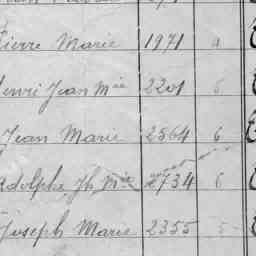 Pierre Marie 1971 a
Henri Jean Mie 2201 6
Jean Marie 2864 6
Adolphe Jh Mie 2734 6
Joseph Marie 2355 5